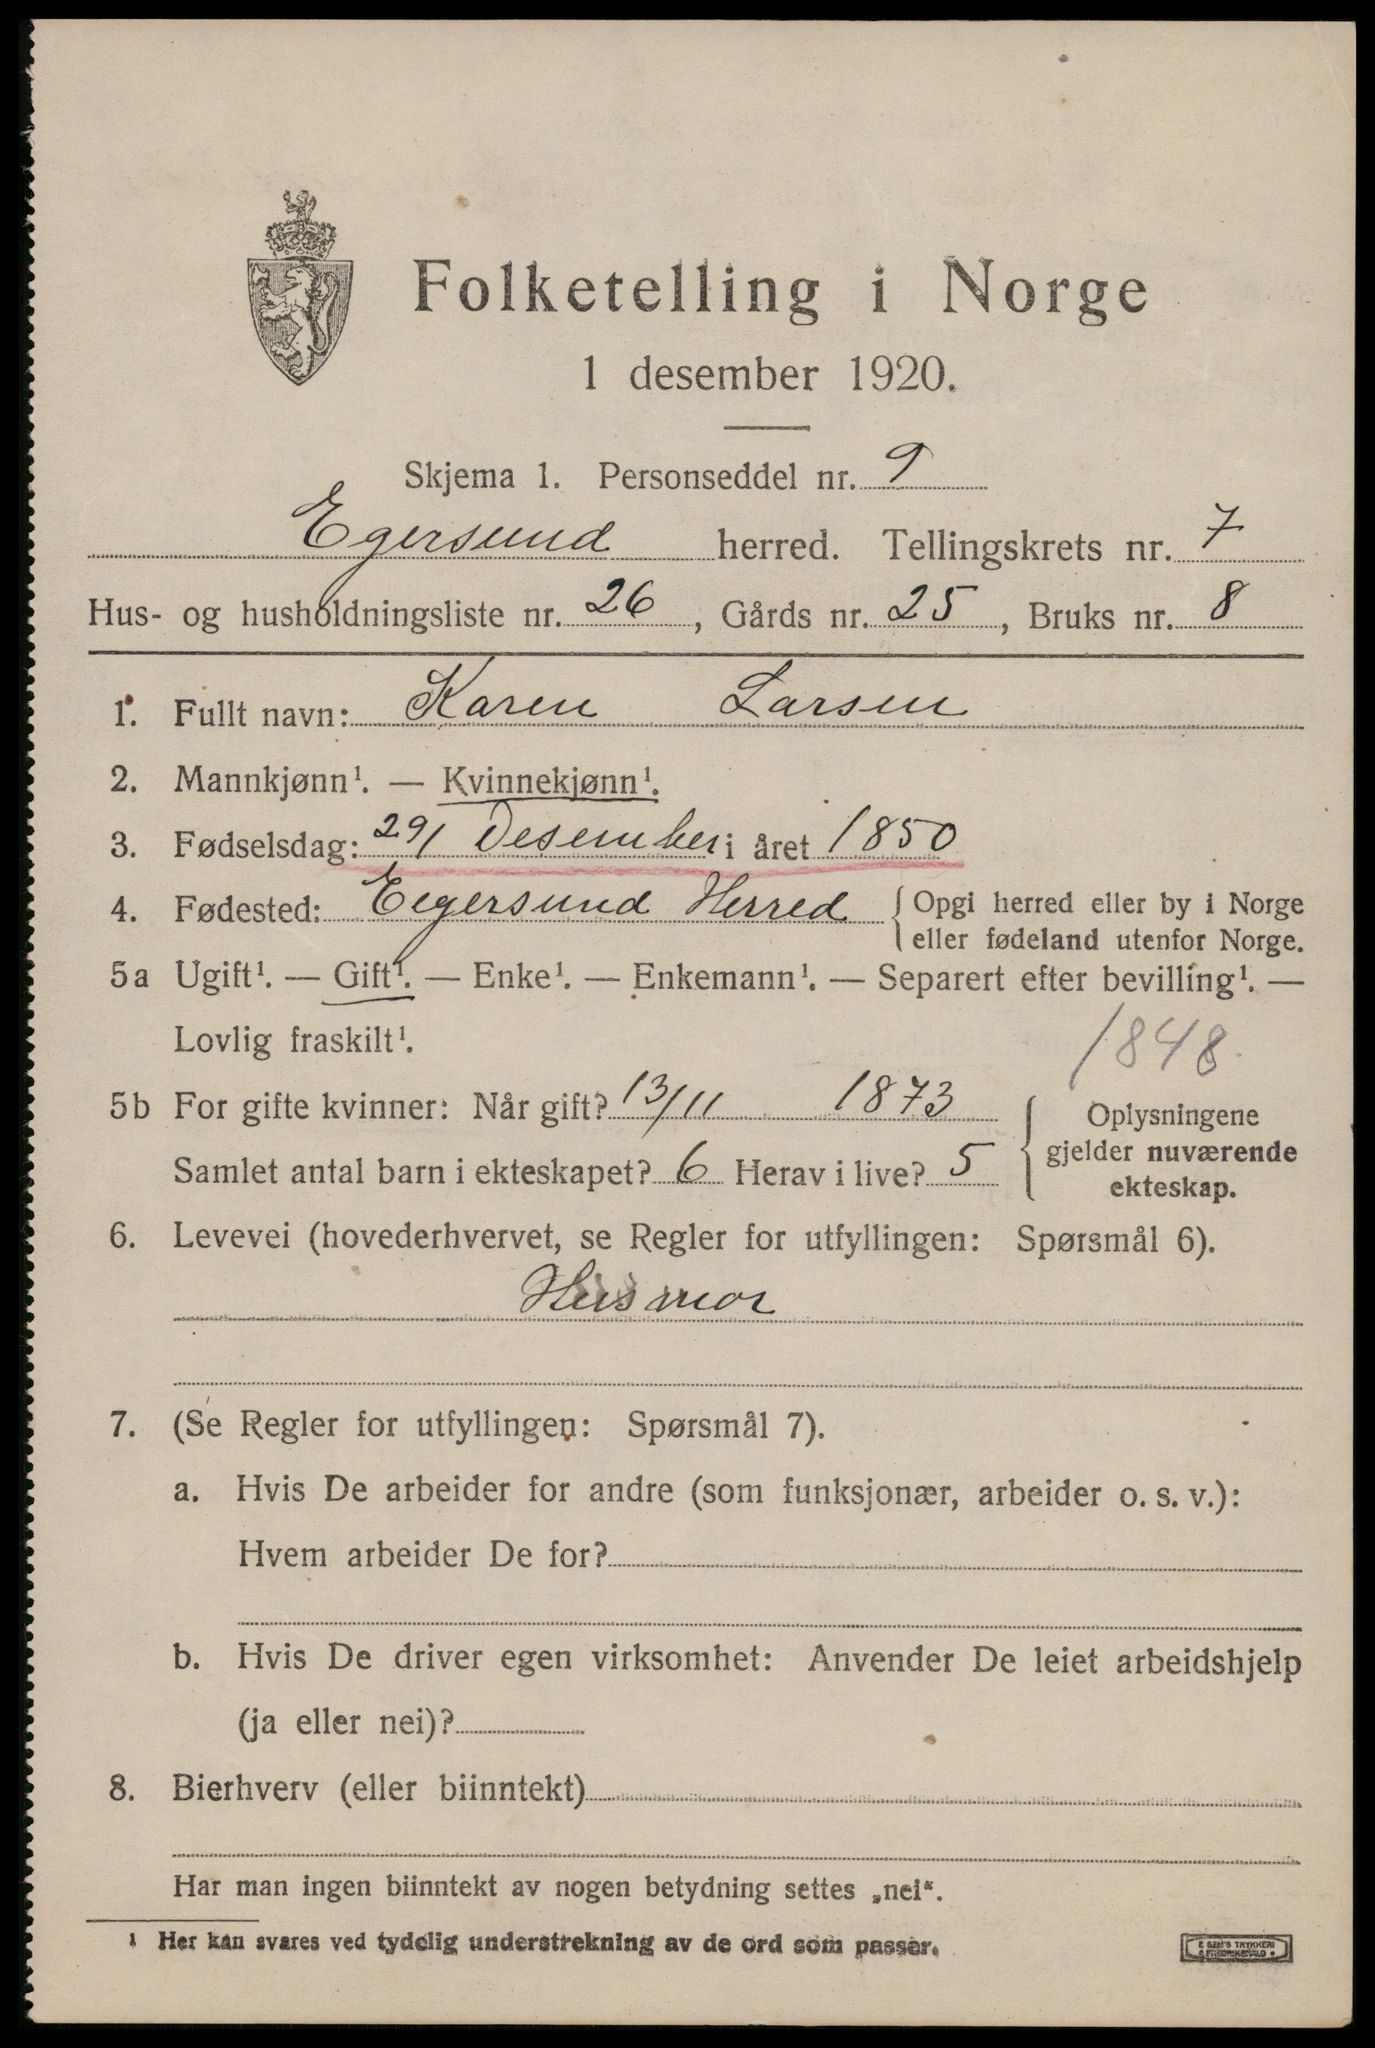 Folketelling i Norge
1 desember 1920.
Skjema 1. Personseddel nr. 9
Egersund herred. Tellingskrets nr. 7
Hus- og husholdningsliste nr. 26, Gårds nr. 25, Bruks nr. 8
1. Fullt navn: Karen Larsen
2. Mannkjønn¹. — Kvinnekjønn¹.
3. Fødselsdag: 29/ Desember i året 1850
4. Fødested: Eigersund Herred { Opgi herred eller by i Norge
eller fødeland utenfor Norge.
5a Ugift¹. — Gift¹. — Enke¹. — Enkemann¹. — Separert efter bevilling¹. —
Lovlig fraskilt¹.
1848.
5b For gifte kvinner: Når gift? 13/11 1873
Samlet antal barn i ekteskapet? 6 Herav i live? 5
{ Oplysningene
gjelder nuværende
ekteskap.
6. Levevei (hovederhvervet, se Regler for utfyllingen: Spørsmål 6).
Husmor
7. (Se Regler for utfyllingen: Spørsmål 7).
a. Hvis De arbeider for andre (som funksjonær, arbeider o. s. v.):
Hvem arbeider De for?
b. Hvis De driver egen virksomhet: Anvender De leiet arbeidshjelp
(ja eller nei)?
8. Bierhverv (eller biinntekt)
Har man ingen biinntekt av nogen betydning settes „nei“.
¹ Her kan svares ved tydelig understrekning av de ord som passer.
E SEM'S TRYKKERI
FREDRIKSHALD